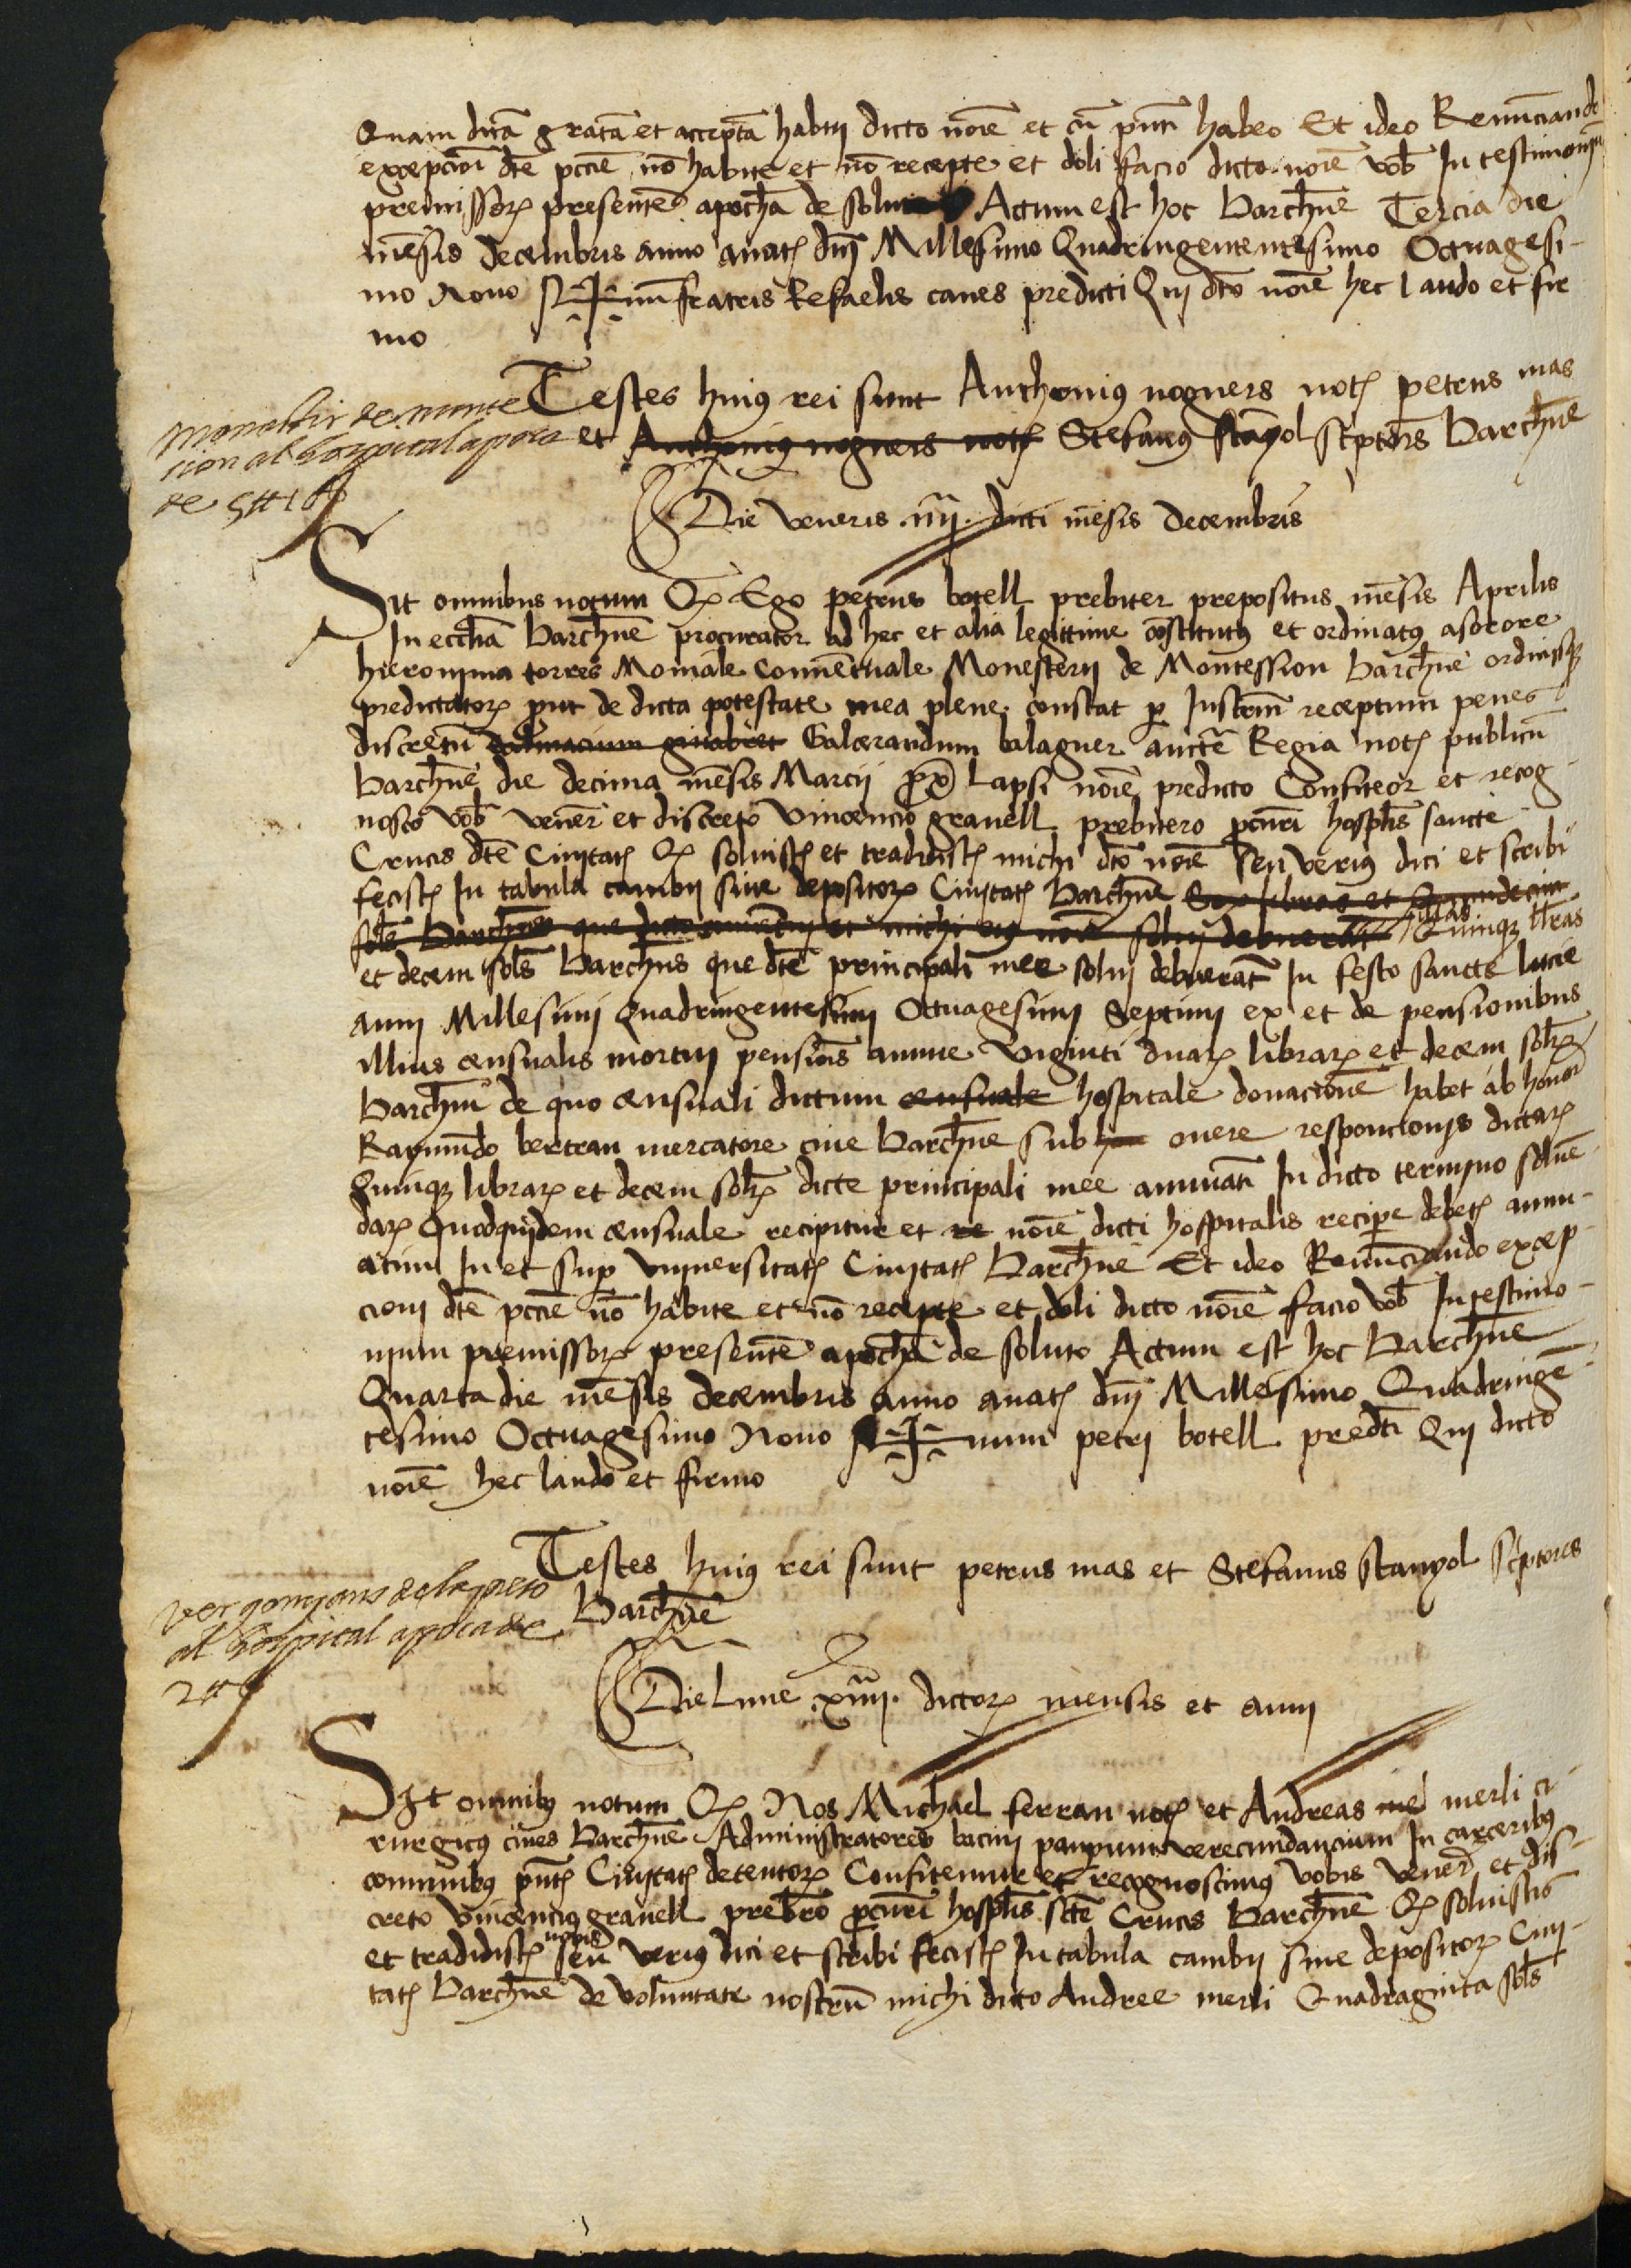 Quam dictã gratã et acceptã habui dicto noĩe et cũ pnti habeo Et ideo Renunciando
excepcioni dte pccie nõ habite et nõ recepte et doli facio dicto noĩe vob In testimoniũ
premissorꝝ presentẽ apochã de Actum est hoc Barchne Tercia die
mẽsis decembris anno a natꝭ dnj Millesimo Quadringentesimo Octuagesi-
mo Nouo S✝num fratris Rafaelis canes predicti Qui dto noĩe hec laudo et fir
mo
Testes huiꝰ rei sunt Anthoniꝰ noguers notꝭ petrus mas
et Anthoniꝰ noguers notꝭ Stefanꝰ stãyol scptores Barchne
monastir de munte
sion al hospital apoca
de 5 ll 10 s
Die veneris .iiij. dicti mẽsis decembris
Sit omnibus notum Qꝫ Ego petrus botell prebiter prepositus mẽsis Aprilis
In ecclia Barchne procurator ad hec et alia legittime cõstitutꝰ et ordinatꝰ a sorore
hieronima torres Moniale conuentuale Monesterij de Montession Barchne ordinis
predicatorꝝ put de dicta potestate mea plene constat ꝑ Instrm receptum penes
discretũ Galcerandum balaguer auctẽ Regia notꝭ publicũ
Barchne die decima mẽsis Marcij px lapsi noĩe predicto Confiteor et recog
nosco vob vener et discreto vincencio grauell prebitero pcurri hosplis sancte
Crucis dte Ciuitatꝭ Qꝫ soluistꝭ et tradidistꝭ michi dto noĩe seu veriꝰ dici et scribi
fecistꝭ In tabula cambij siue depositorꝝ Ciuitatꝭ Barchne Sex libras et quindecim
sols Barchñ que dicto et michi eiꝰ noĩe solui debuerãt illas Quinqꝫ llras
et decem sols Barchñs que dte principali mee solui debuerãt In festo sancte lucie
anni Millesimi Quadringentesimi Octuagesimi Septimi ex et de pensionibus
illius censualis mortui pensiõs annue viginti duarꝝ librarꝝ et decem solꝝ
Barchñ de quo censuali dictum censuale hospitale donacionẽ habet ab honor
Raymũdo bertran mercatore ciue Barchne sub hon onere responcionis dictarꝝ
Quinqꝫ librarꝝ et decem solꝝ dicte principali mee annuatĩ In dicto termino soluẽ
darꝝ Quodquidem censuale recipitur et re noĩe dicti hospitalis recipe debetꝭ annu-
atim In et sup vniuersitatꝭ Ciuitatꝭ Barchne Et ideo Renunciando excep-
cioni dte pccie nõ habite et nõ recepte et doli dicto noĩe facio vob In testimo-
nium premissorꝝ presentẽ apochã de soluto Actum est hoc Barchne
Quarta die mẽsis decembris anno a natꝭ dnj Millesimo Quadringẽ
tesimo Octuagesimo Nouo S✝num petri botell predti Qui dicto
noĩe hec laudo et firmo
Testes huiꝰ rei sunt petrus mas et Stefanus stanyol scptores
Barchne
vergonyans de la preso
al hospital apoca de
2 ll
Die Lune xiiij. dictorꝝ mensis et anni
Sit omnibꝰ notum Qꝫ Nos Michael ferran notꝭ et Andreas me merli ci-
rurgicꝰ ciues Barchne Administratores bacini paupum verecundancium In carceribꝰ
comunibꝰ pntꝭ Ciuitatꝭ detentorꝝ Confitemur et recognoscimꝰ vobis vener et dis-
creto vincencio grauell prebro pcurri hosplis scte Crucis Barchne Qꝫ soluistis
et tradidistꝭ nobis seu veriꝰ dici et scribi fecistꝭ In tabula cambij siue depositorꝝ Ciui-
tatꝭ Barchne de voluntate nostrũ michi dicto Andree merli Quadraginta sols